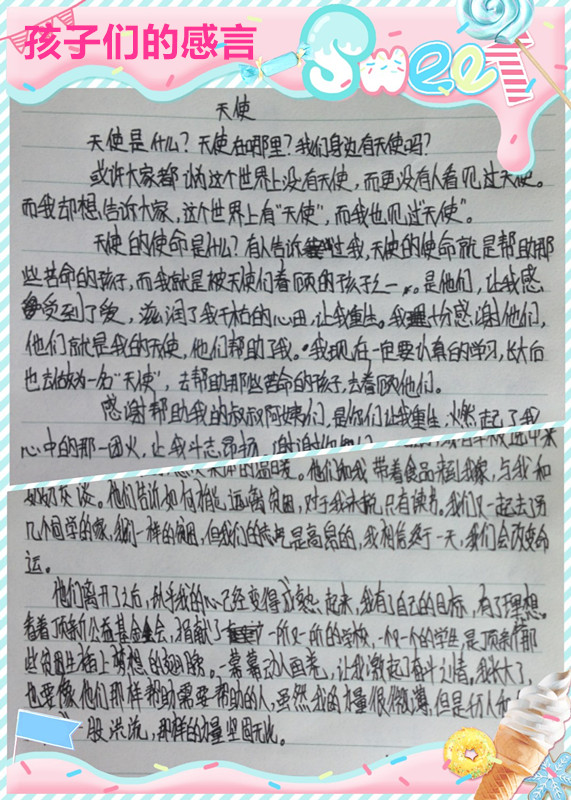 孩子们的感言
Sweet
天使
天使是什么?天使在哪里?我们身边有天使吗?
或许大家都认为这个世界上没有天使,而更没有人看见过天使。
而我却想告诉大家,这个世界上有"天使",而我也见过"天使"。
天使的使命是什么?有人告诉过我,天使的使命就是帮助那
些苦命的孩子,而我就是被天使们看顾的孩子之一。是他们,让我感
受到了爱,滋润了我干枯的心田,让我重生。我十分感谢他们,
他们就是我的天使,他们帮助了我。我现在一定要认真的学习,长大后
也去做为一名"天使",去帮助那些苦命的孩子,去看顾他们。
感谢帮助我的叔叔阿姨们,是你们让我重生,燃起了我
心中的那一团火,让我斗志昂扬,谢谢你们
的温暖。他们和我带着食品来到我家,与我和
奶奶交谈。他们告诉如何才能远离贫困,对于我来说,只有读书。我们又一起去了另
几个同学的家,我们一样的贫困,但我们的志气是高昂的,我相信终于一天,我们会改变命
运。
他们离开了之后,似乎我的心已经变得成熟起来,我有了自己的目标,有了理想。
看着顶新公益基金会,捐献了一所又一所的学校,一个又一个的学生,是顶新那
些贫困生插上梦想的翅膀。一幕幕动人画卷,让我激起了奋斗之情。我长大了,
也要像他们那样帮助需要帮助的人,虽然我的力量很微薄,但是万人
一股洪流,那样的力量坚固无比。